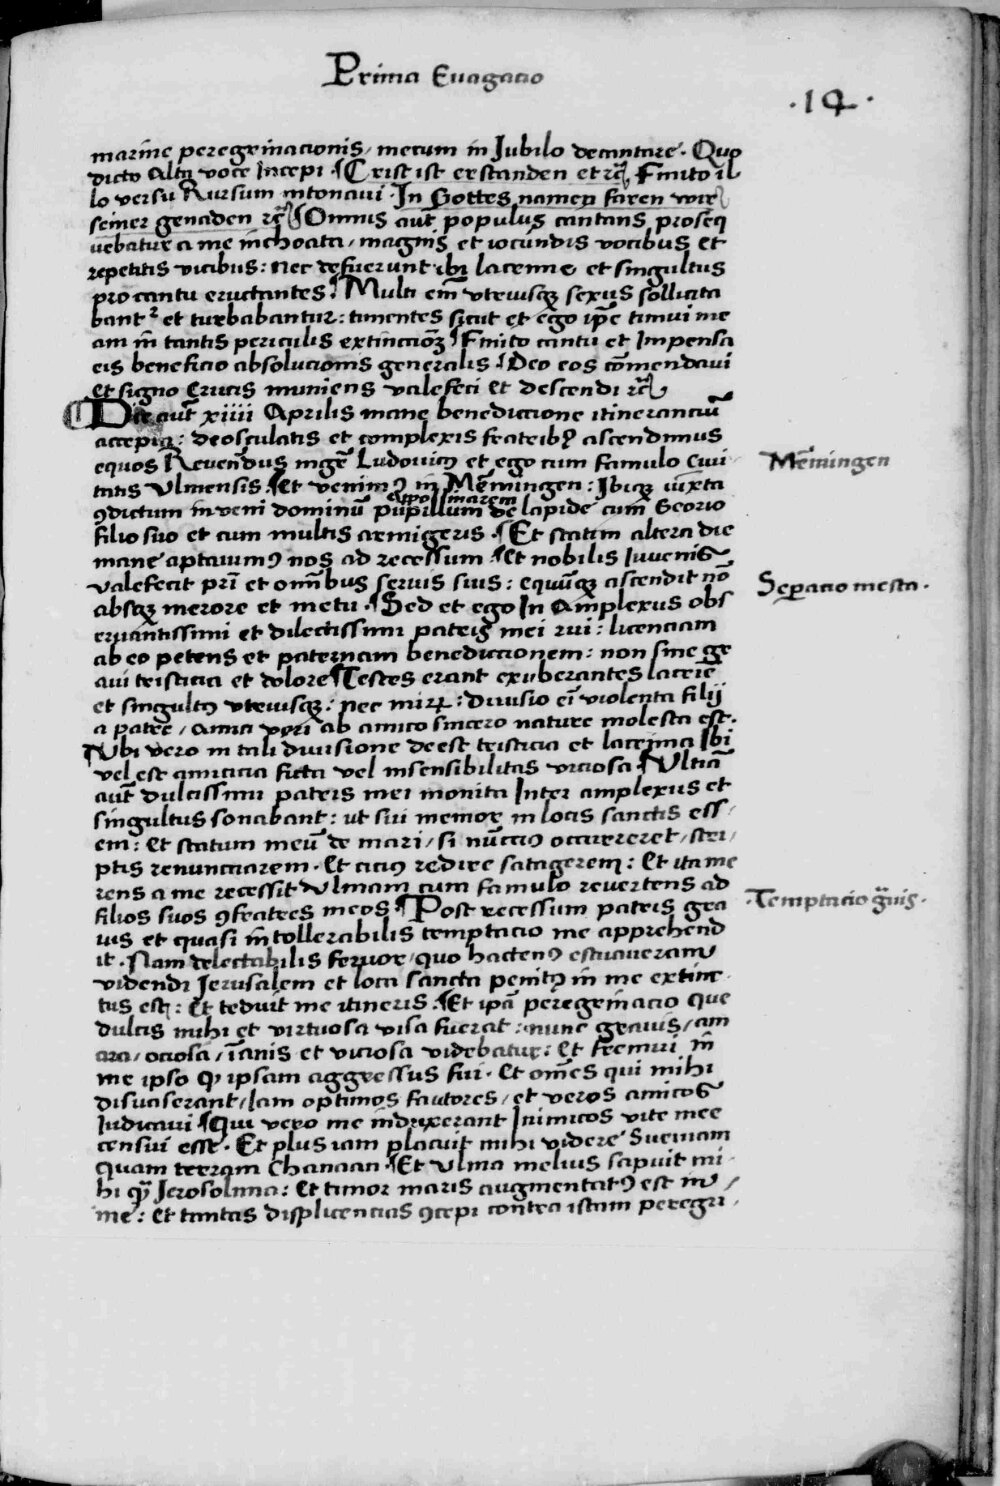 Prima Evagacio
.14.
marine peregrinacionis / mecum in Jubilo decantare . Quo
dicto Alta voce Incepi ¶ Crist ist erstanden et rc̃ Finito il
lo versu Rursum intonavi . In Gottes namen faren wir
seiner genaden rc̃ ¶ Omnis aut̃ populus cantans proseq
uebatur a me inchoata / magnis et iocundis vocibus et
repetitis vicibus : nec defuerunt ibi lacrime et singultus
pro cantu eructantes ¶ Multi em̃ vtriusqꝫ sexus sollicita
bant᷑ et turbabantur : timentes sicut et ego ip̃e timui me
am in tantis periculis extinccioꝫ ¶ Finito cantu et Impensa
eis beneficio absolucionis generalis . Deo eos com̃endavi
et signo Crucis muniens valefeci et descendi rc̃
Die aut̃ xiiii Aprilis mane benediccione itineranciũ
accepta : deosculatis et complexis fratribꝰ ascendimus
equos Reuen̄dus mg̃r Ludovicꝰ et ego cum famulo Ciui
Mem̃ingen
tatis Vlmensis . ¶ Et venimꝰ in Mem̃ingen : Ibiqꝫ iuxta
Appolinarem
ꝯdictum inveni dominũ pupillum de lapide cum Georio
filio suo et cum multis armigeris . ¶ Et statim altera die
mane aptauimꝰ nos ad recessum . ¶ Et nobilis Iuvenis
valefecit pr̃i et omĩbus seruis suis : equũqꝫ ascendit nõ
Sep̱aracio mesta .
absqꝫ merore et metu . ¶ Sed et ego In Amplexus obs
eruantissimi et dilectissimi patris mei rui : licenciam
ab eo petens et paternam benediccionem : non sine gr
aui tristicia et dolore ¶ Testes erant exuberantes lacrim̃e
et singultꝰ vtriusqꝫ : nec mirꝝ : Diuisio em̃ violenta filij
a patre / amici veri ab amico sincero nature molesta est .
Vbi vero in tali diuisione deest tristicia et lacrima Ibi
vel est amicicia ficta vel insensibilitas viciosa . ¶ Vltiã
aut̃ dulcissimi patris mei monita Inter amplexus et
singultus sonabant : ut sui memor in locis sanctis ess /
em : Et statum meũ de mari / si nũccius occurreret / scri /
ptis renunciarem . Et cicius redire satagerem : Et ita me
rens a me recessit Vlmam cum famulo revertens ad
Temptacio g̃uis .
filios suos ꝯfratres meos . ¶ Post recessum patris gra
uis et quasi intollerabilis temptacio me apprehend
it . Nam delectabilis feruor / quo hactenꝰ estuaueram
videndi Jerusalem et loca sancta penitꝰ in me extinc
tus est : Et teduit me itineris . ¶ Et ip̃a peregrinacio que
dulcis mihi et virtuosa visa fuerat : nunc grauis / am
ara / ociosa / iñanis et viciosa videbatur : Et fremui in
me ipso ꝙ ipsam aggressus fui . Et om̃es qui mihi
disuaserant / Iam optimos fautores / et veros amicos
Iudicaui ¶ Qui vero me induxerant Inimicos vite mee
censui esse . Et plus iam placuit mihi videre Sueuiam
quam terram Chanaan . ¶ Et Vlma melius sapuit mi
hi qᷓ Jerosolima : Et timor maris augmentatꝰ est in /
me : Et tantas displicencias ꝯcepi contra istam peregri /